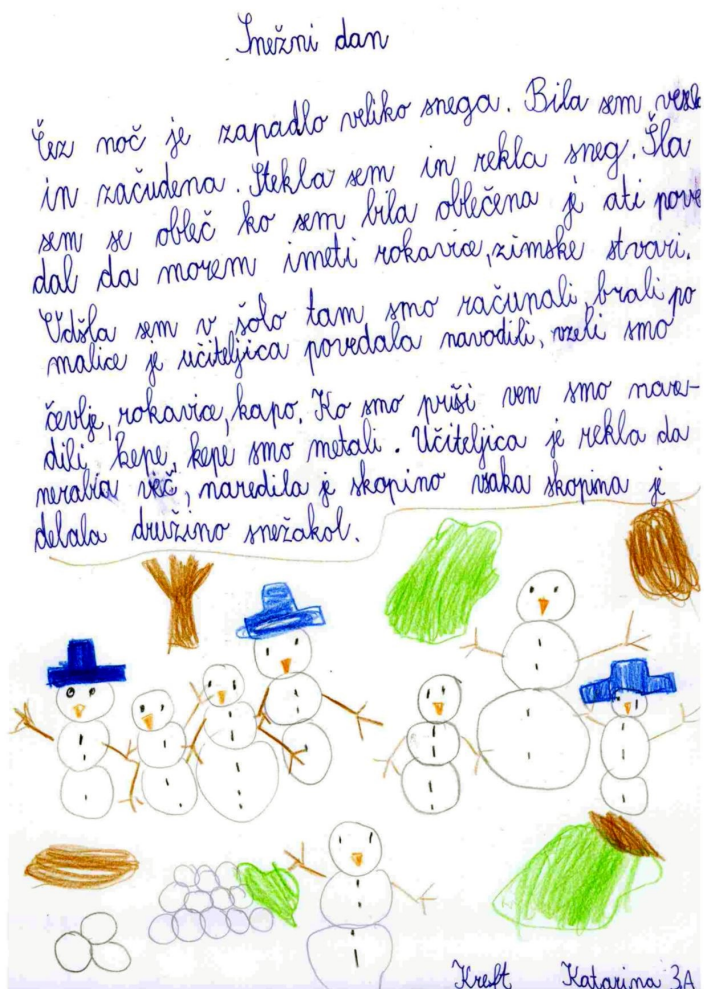 Snežni dan
Čez noč je zapadlo veliko snega. Bila sem
in začudena. Stekla sem in rekla sneg. Šla
sem se obleč ko sem bila oblečena je ati pove
dal da morem imeti rokavice, zimske stvari.
Odšla sem v šolo tam smo računali, brali po
malice je učiteljica povedala navodili, vzeli smo
čevlje, rokavice, kapo. Ko smo priši ven smo nare-
dili kepe, kepe smo metali. Učiteljica je rekla da
več, naredila je skopino vsaka skopina je
delala družino snežakol.
Kreft Katarina 3A